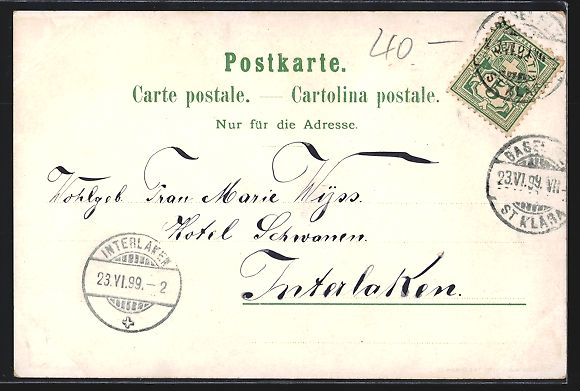 40.—
Postkarte.
Carte postale. — Cartolina postale.
Nur für die Adresse.
BASEL
23.VI.99.VII-
ST KLARA
Wohlgeb. Frau Marie Wyss.
Hotel Schwanen.
Interlaken.
INTERLAKEN
23.VI.99.-2